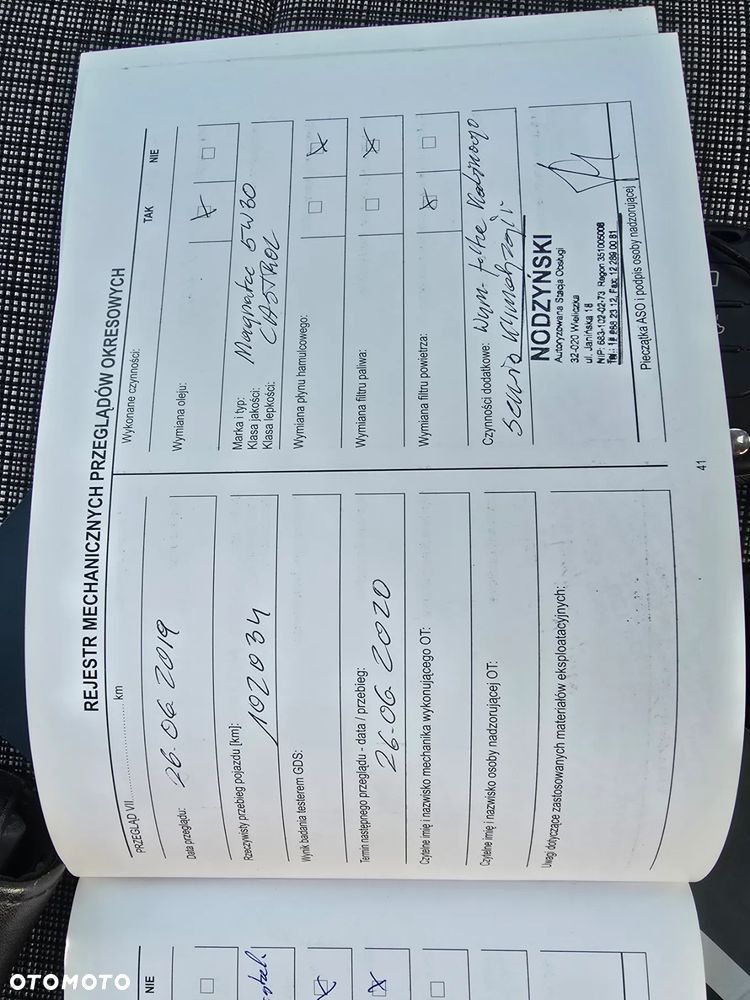 REJESTR MECHANICZNYCH PRZEGLĄDÓW OKRESOWYCH
PRZEGLĄD VII..............................km
Data przeglądu: 26.06 2019
Rzeczywisty przebieg pojazdu [km]:
102034
Wynik badania testerem GDS:
Termin następnego przeglądu - data / przebieg:
26-06 2020
Czytelne imię i nazwisko mechanika wykonującego OT:
Czytelne imię i nazwisko osoby nadzorującej OT:
Uwagi dotyczące zastosowanych materiałów eksploatacyjnych:
Wykonane czynności:
TAK NIE
Wymiana oleju:
Marka i typ: Magnatec 5W30
Klasa jakości: CASTROL
Klasa lepkości:
Wymiana płynu hamulcowego:
Wymiana filtru paliwa:
Wymiana filtru powietrza:
Czynności dodatkowe: Wym. filtra kabinowego
Serwis klimatyzacji
NODZYŃSKI
Autoryzowana Stacja Obsługi
32-020 Wieliczka
ul. Janińska 18
NIP: 683-102-02-73 Regon 351005008
Fax: 12 289 00 81
Pieczątka ASO i podpis osoby nadzorującej
41
NIE
OTOMOTO